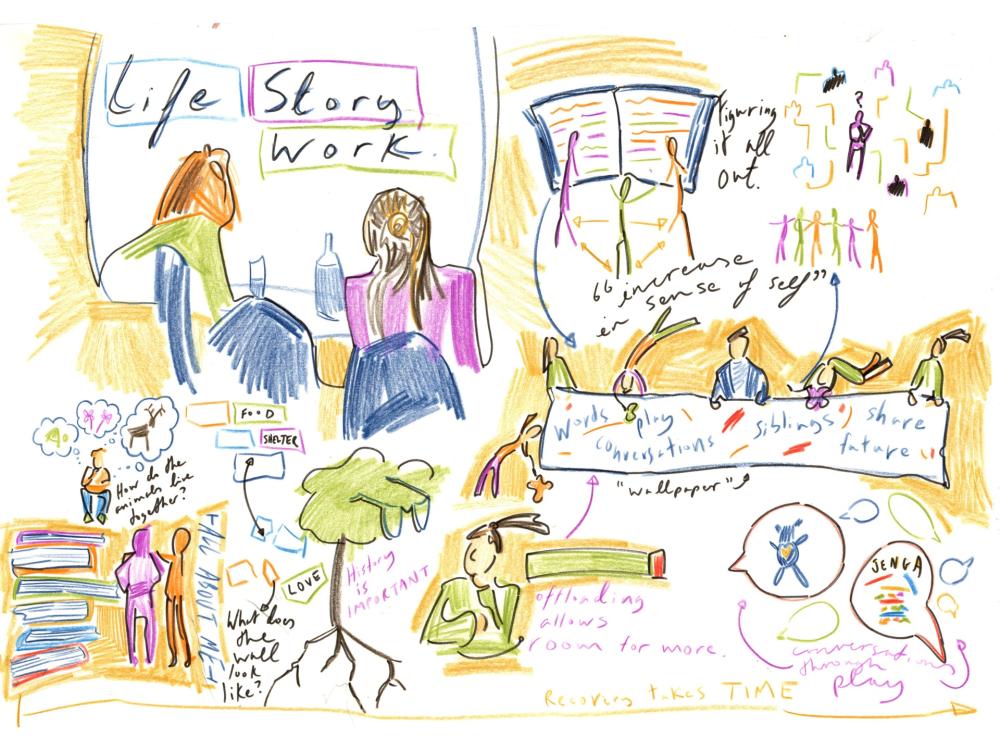 Life Story
Work.
Figuring
it all
out.
?
"increase
in sense of self"
FOOD
SHELTER
How do the
animals live
together?
words play siblings share
conversations future
"wallpaper"
ALL ABOUT ME
LOVE
What does
the
wall
look
like?
History
is
IMPORTANT
offloading
allows
room for more.
JENGA
conversations
through
play
Recovery takes TIME